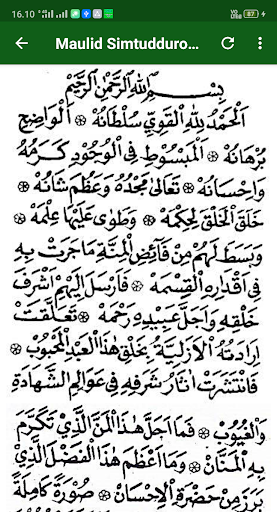 16.10
87
Maulid Simtudduro...
بِسْــمِ اللهِ الرَّحْمٰنِ الرَّحِيْمِ
اَلْحَمْدُ لِلّٰهِ الْقَوِيِّ سُلْطَانُهُ ۞ اَلْوَاضِحِ
بُرْهَانُهُ ۞ اَلْمَبْسُوْطِ فِى الْوُجُوْدِ كَرَمُهُ
وَاِحْسَانُهُ ۞ تَعَالٰى مَجْدُهُ وَعَظُمَ شَانُهُ ۞
خَلَقَ الْخَلْقَ لِحِكْمَهْ ۞ وَطَوٰى عَلَيْهَا عِلْمَهْ ۞
وَبَسَطَ لَهُمْ مِنْ فَآئِضِ الْمِنَّةِ مَاجَرَتْ بِهِ
فِى اَقْدَارِهِ الْقِسْمَهْ ۞ فَاَرْسَلَ اِلَيْهِمْ اَشْرَفَ
خَلْقِهِ وَاَجَلَّ عَبِيْدِهِ رَحْمَهْ ۞ تَعَلَّقَتْ
اِرَادَتُهُ الْاَزَلِيَّةُ بِخَلْقِ هٰذَا الْعَبْدِ الْمَحْبُوْبِ ۞
فَانْتَشَرَتْ اٰثَارُ شَرَفِهِ فِى عَوَالِمِ الشَّهَادَةِ
وَالْغُيُوْبِ ۞ فَمَا اَجَلَّ هٰذَا الْمَنَّ الَّذِيْ تَكَرَّمَ
بِهِ الْمَنَّانُ ۞ وَمَا اَعْظَمَ هٰذَا الْفَضْلَ الَّذِيْ
بَرَزَ مِنْ حَضْرَةِ الْاِحْسَانِ ۞ صُوْرَةً كَامِلَةً